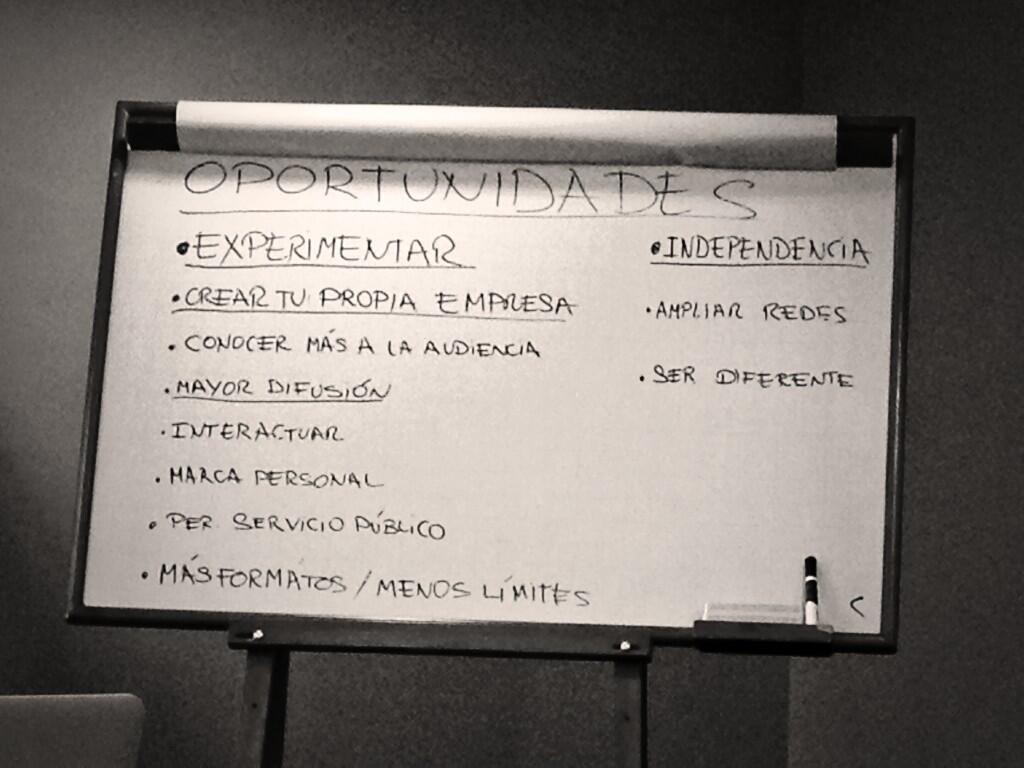 OPORTUNIDADES
• EXPERIMENTAR
• CREAR TU PROPIA EMPRESA
• CONOCER MÁS A LA AUDIENCIA
• MAYOR DIFUSIÓN
• INTERACTUAR
• MARCA PERSONAL
• PER. SERVICIO PÚBLICO
• MÁS FORMATOS / MENOS LÍMITES
• INDEPENDENCIA
• AMPLIAR REDES
• SER DIFERENTE